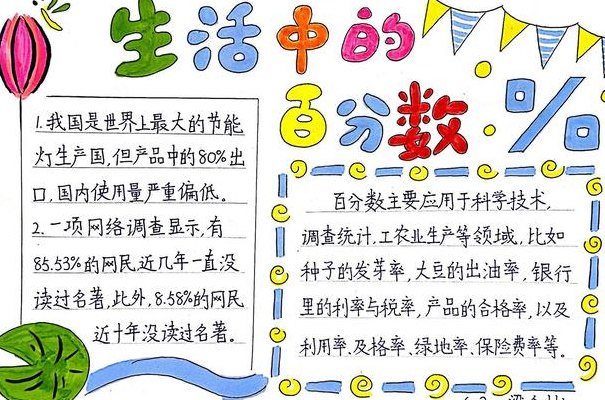 生活中的
百分数 %
1.我国是世界上最大的节能
灯生产国,但产品中的80%出
口,国内使用量严重偏低。
2.一项网络调查显示,有
85.53%的网民近几年一直没
读过名著,此外,8.58%的网民
近十年没读过名著。
百分数主要应用于科学技术,
调查统计,工农业生产等领域,比如
种子的发芽率,大豆的出油率,银行
里的利率与税率,产品的合格率,以及
利用率、及格率、绿地率、保险费率等。